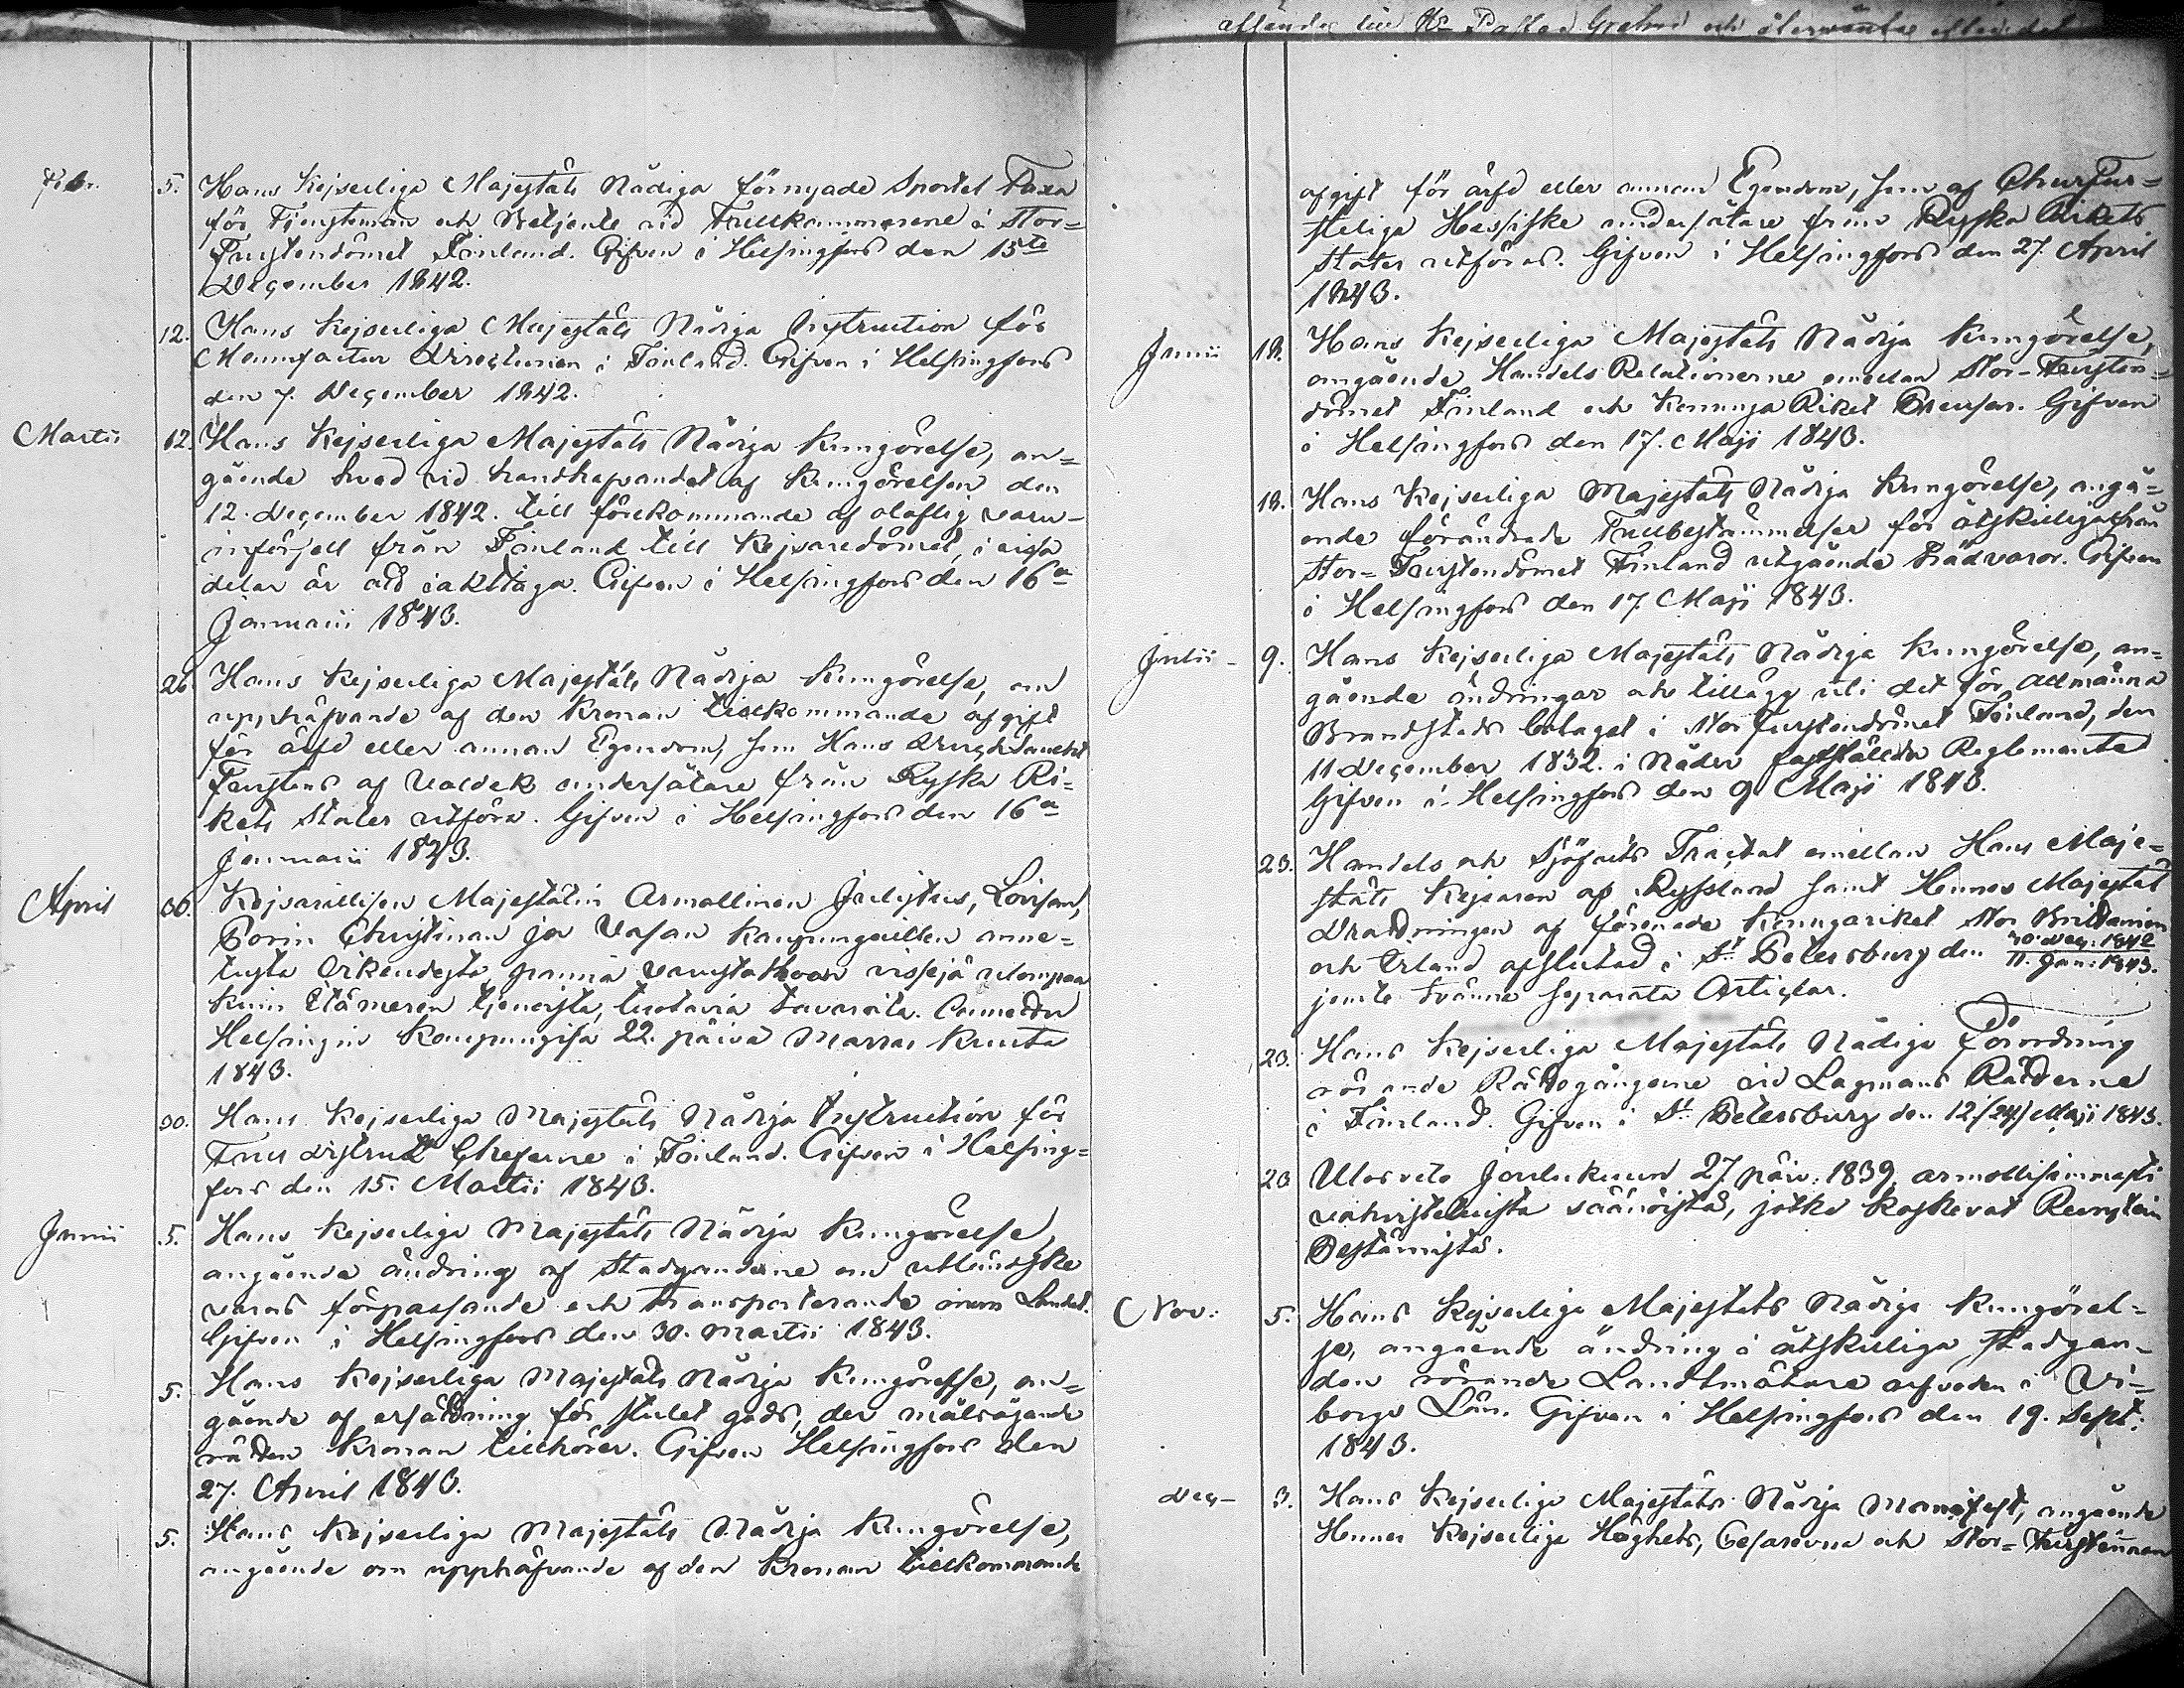 Febr. 5. Hans Kejserliga Majestäts Nådiga förnyade Sportel Taxa
för Tjenstemän och Betjente vid Tullkamrarene i Stor=
Furstendömet Finland. Gifven i Helsingfors den 15te
December 1842.
12. Hans Kejserliga Majestäts Nådiga Instruction för
Manufactur Directionen i Finland. Gifven i Helsingfors
den 7. December 1842.
Martii 12. Hans Kejserliga Majestäts Nådiga Kungörelse, an=
gående hvad vid handhafvandet af Kungörelsen den
12. December 1842. till förekommande af olaflig varu-
införsell från Finland till Kejsaredömet, i vissa
delar är att iakttaga. Gifven i Helsingfors den 16de
Januarii 1843.
26. Hans Kejserliga Majestäts Nådiga Kungörelse, om
upphäfvande af den Kronan tillkommande afgift
för ärfd eller annan Egendom, som Hans
Furstens af Valdek undersåtare från Ryska Ri=
kets Stater utföra. Gifven i Helsingfors den 16de
Januarii 1843.
April 30. Kejsarillisen Majestätin Armollinen Julistus, Lovisan,
Borin Christinan ja Vasan Kaupungeillen anne=
tusta Oikeudesta, panna varustakoon vissejä ulompaa
kuin Itämeren tienoista, tuotavia tavaroita. Annettu
Helsingin Kaupungisa 22. päivä Marras Kuuta
1843.
30. Hans Kejserliga Majestäts Nådiga Instruction för
Tull Distrikt Cheferne i Finland. Gifven i Helsing=
fors den 15. Martii 1843.
Junii 5. Hans Kejserliga Majestäts Nådiga Kungörelse,
angående ändring af Stadganderne om utländske
varors förpassande och transporterande inom Landet.
Gifven i Helsingfors den 30. Martii 1843.
5. Hans Kejserliga Majestäts Nådiga Kungörelse, an=
gående af ersättning för stulet gods, der målsägande
rätten Kronan tillhörer. Gifven Helsingfors den
27. April 1843.
5. Hans Kejserliga Majestäts Nådiga Kungörelse,
angående om upphäfvande af den Kronan tillkommande
och återväntas
afgift för ärfd eller annan Egendom, som af Churfur=
steliga Hessiske undersåtare från Ryska Rikets
Stater utföras. Gifven i Helsingfors den 27. April
1843.
Junii 18. Hans Kejserliga Majestäts Nådiga Kungörelse,
angående Handels Relationerne emellan Stor-Fursten=
dömet Finland och Konunga Riket Preussen. Gifven
i Helsingfors den 17. Maji 1843.
18. Hans Kejserliga Majestäts Nådiga Kungörelse, angå=
ende förändrade Tullbestämmelser för åtskilliga från
Stor=Furstendömet Finland utgående Trädvaror. Gifven
i Helsingfors den 17. Maji 1843.
Julii - 9. Hans Kejserliga Majestäts Nådiga Kungörelse, an=
gående ändringar och tillägg uti det för Allmänna
Brandstods bolaget i Stor Furstendömet Finland, den
11 December 1832. i Nåder fastställda Reglemente
Gifven i Helsingfors den 9 Maji 1843.
23. Handels och Sjöfarts Tractat emellan Hans Maje=
stäts Kejsaren af Ryssland samt Hennes Majestät
Drottningen af förenade Konungariket Stor Brittanien
och Irland afslutad i St. Petersburg den 30. Dec: 1842 11. Jan: 1843.
jemte tvänne separata Artiklar.
23. Hans Kejserliga Majestäts Nådiga Förordning
rörande Rättegångarne vid Lagmans Rätterne
i Finland. Gifven i St. Petersburg den 12/24/ Maji 1843.
23 Ulosveto Joulukuun 27 päiv. 1839, armollisimmasti
vahvistetuista säännöistä, jotka koskevat
Nov: 5. Hans Kejserliga Majestets Nådiga Kungörel=
se, angående ändring i åtskilliga stadgan=
den rörande Landtmätare arfvoden i Vi=
borgs Län. Gifven i Helsingfors den 19. Sept:
1843.
Dec- 3. Hans Kejserliga Majestäts Nådiga Manifest, angående
Hennes Kejserliga Höghets, Cesarevna och Stor=Furstinnan